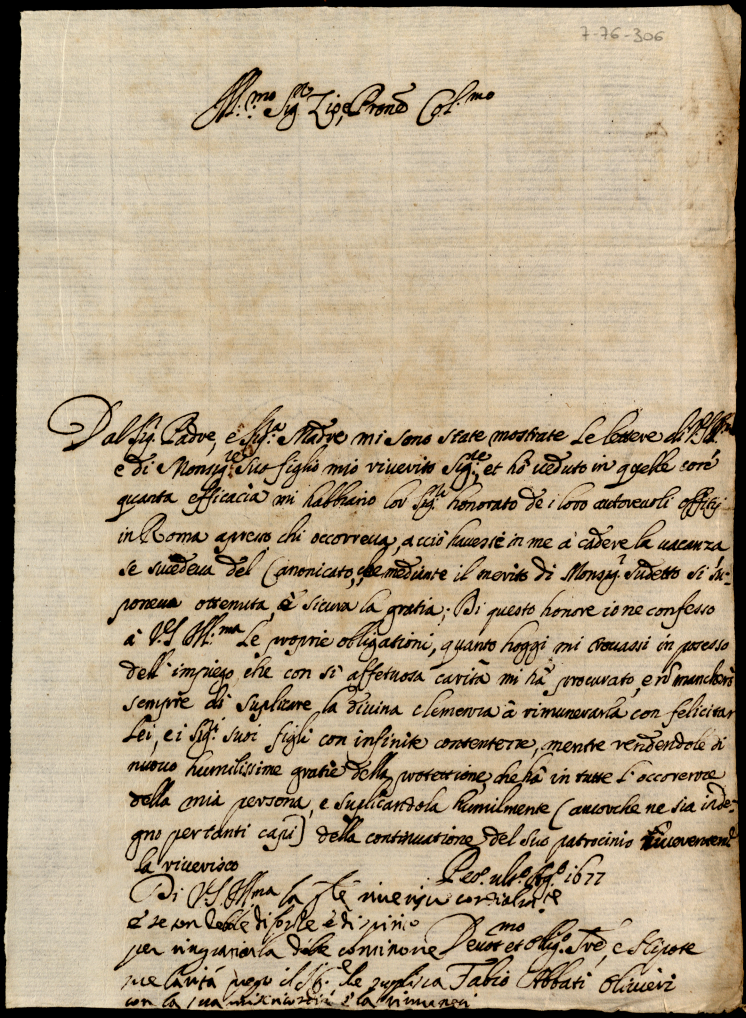 7-76-306
Ill.mo Sig.re Zio, e Prone Col.mo
Dal Sig.r Padre, e Sig.ra Madre mi sono state mostrate le lettere di V.S. Ill.ma
e di Monsig.re Suo figlio mio riverito Sig.re, et hò veduto in quelle con
quanta efficacia mi habbiano lor Sig.ri honorato de i loro autorevoli offitij
in Roma apresso chi occorreva, acciò havesse in me à cadere la vacanza
se succedeva del Canonicato, che mediante il merito di Monsig.r sudetto si su-
poneva ottenuta, e sicura la gratia; Di questo honore io ne confesso
à V.S. Ill.ma le proprie obligationi, quanto hoggi mi trovassi in possesso
dell'impiego che con sì affetuosa carità mi hà procurato, e nõ mancherò
sempre di suplicare la divina clemenza à rimunerarla con felicitar
Lei, e i Sig.ri suoi figli con infinite contentezze, mentre rendendole di
nuovo humilissime gratie della protettione, che hà in tutte l'occorenze
della mia persona, e suplicandola humilmente (ancorche ne sia inde-
gno per tanti capi) della continuatione del suo patrocinio riverentem.te
la riverisco
Pes.o ult.o 1677
Di V.S. Ill.ma
la riverisce cordialm.te
e se ben debole di forze e di spirito
per ringratiarla
Devot.mo et oblig.mo Ser.e, e Nipote
Fabio Abbati Olivieri
con la sua